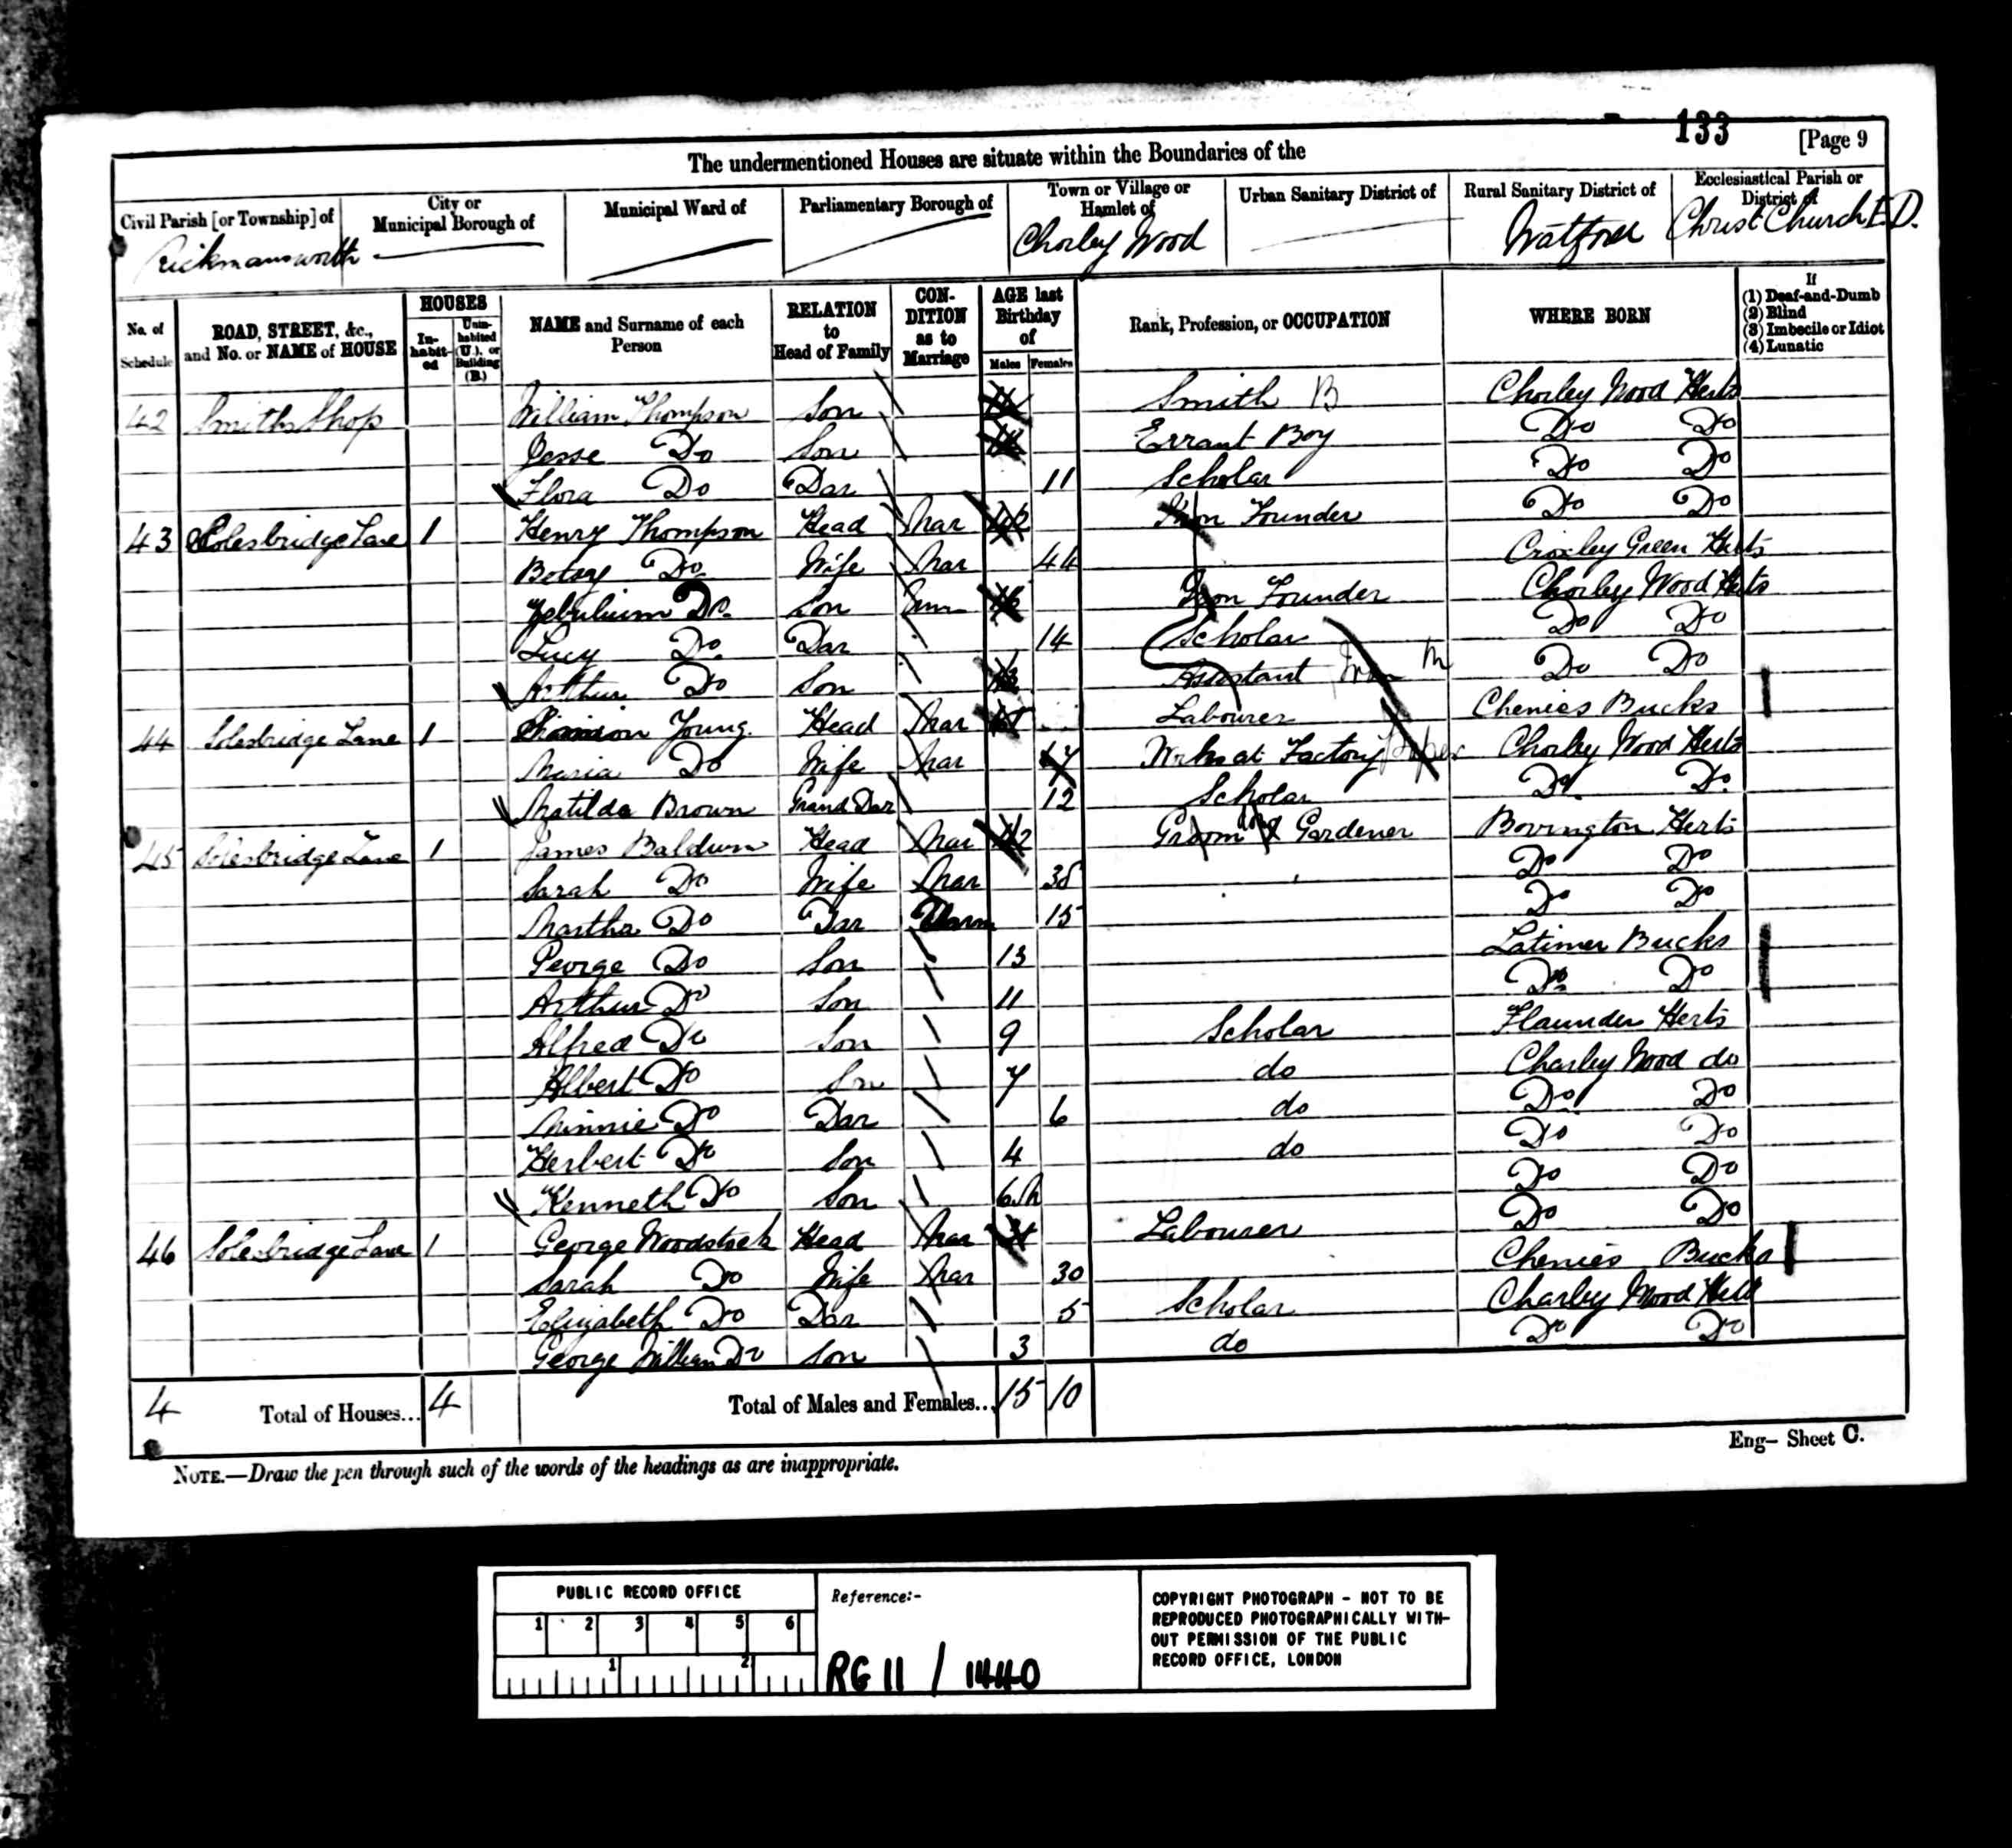 133
[Page 9
The undermentioned Houses are situate within the Boundaries of the
Civil Parish [or Township] of
City or Municipal Borough of
Municipal Ward of
Parliamentary Borough of
Town or Village or Hamlet of
Urban Sanitary District of
Rural Sanitary District of
Ecclesiastical Parish or District of
Rickmansworth
Chorley Wood
Watford
Christ Church E.D.
No. of Schedule
ROAD, STREET, &c., and No. or NAME of HOUSE
HOUSES
In-habit-ed
Unin-habited (U.), or Building (B.)
NAME and Surname of each Person
RELATION to Head of Family
CON-DITION as to Marriage
AGE last Birthday of
Males Females
Rank, Profession, or OCCUPATION
WHERE BORN
If
(1) Deaf-and-Dumb
(2) Blind
(3) Imbecile or Idiot
(4) Lunatic
42 Smiths Shop William Thompson Son Smith B Chorley Wood Herts
Jesse Do Son Errant Boy Do Do
Flora Do Dar 11 Scholar Do Do
43 Solesbridge Lane 1 Henry Thompson Head Mar 42 Iron Founder Do Do
Betsy Do Wife Mar 44 Croxley Green Herts
Do Son Unm 16 Iron Founder Chorley Wood Herts
Lucy Do Dar 14 Scholar Do Do
Arthur Do Son 13 Assistant Iron Do Do
44 Solesbridge Lane 1 Young Head Mar Labourer Chenies Bucks
Maria Do Wife Mar Works at Factory Paper Chorley Wood Herts
Matilda Brown Grand Dar 12 Scholar Do Do
45 Solesbridge Lane 1 James Baldwin Head Mar 42 Groom & Gardener Bovington Herts
Sarah Do Wife Mar 38 Do Do
Martha Do Dar Unm 15 Do Do
George Do Son 13 Latimer Bucks
Arthur Do Son 11 Do Do
Alfred Do Son 9 Scholar Flaunder Herts
Albert Do Son 7 do Charley Wood do
Minnie Do Dar 6 do Do Do
Herbert Do Son 4 do Do Do
Kenneth Do Son 6 m Do Do
46 Solesbridge Lane 1 George Woodstock Head Mar Labourer Do Do
Sarah Do Wife Mar 30 Chenies Bucks
Elizabeth Do Dar 5 Scholar Charley Wood
George William Do Son 3 do Do Do
4 Total of Houses... 4 Total of Males and Females... 15 10
Eng- Sheet C.
NOTE.—Draw the pen through such of the words of the headings as are inappropriate.
PUBLIC RECORD OFFICE
1 2 3 4 5 6
1 2
Reference:-
RG 11 / 1440
COPYRIGHT PHOTOGRAPH - NOT TO BE
REPRODUCED PHOTOGRAPHICALLY WITH-
OUT PERMISSION OF THE PUBLIC
RECORD OFFICE, LONDON